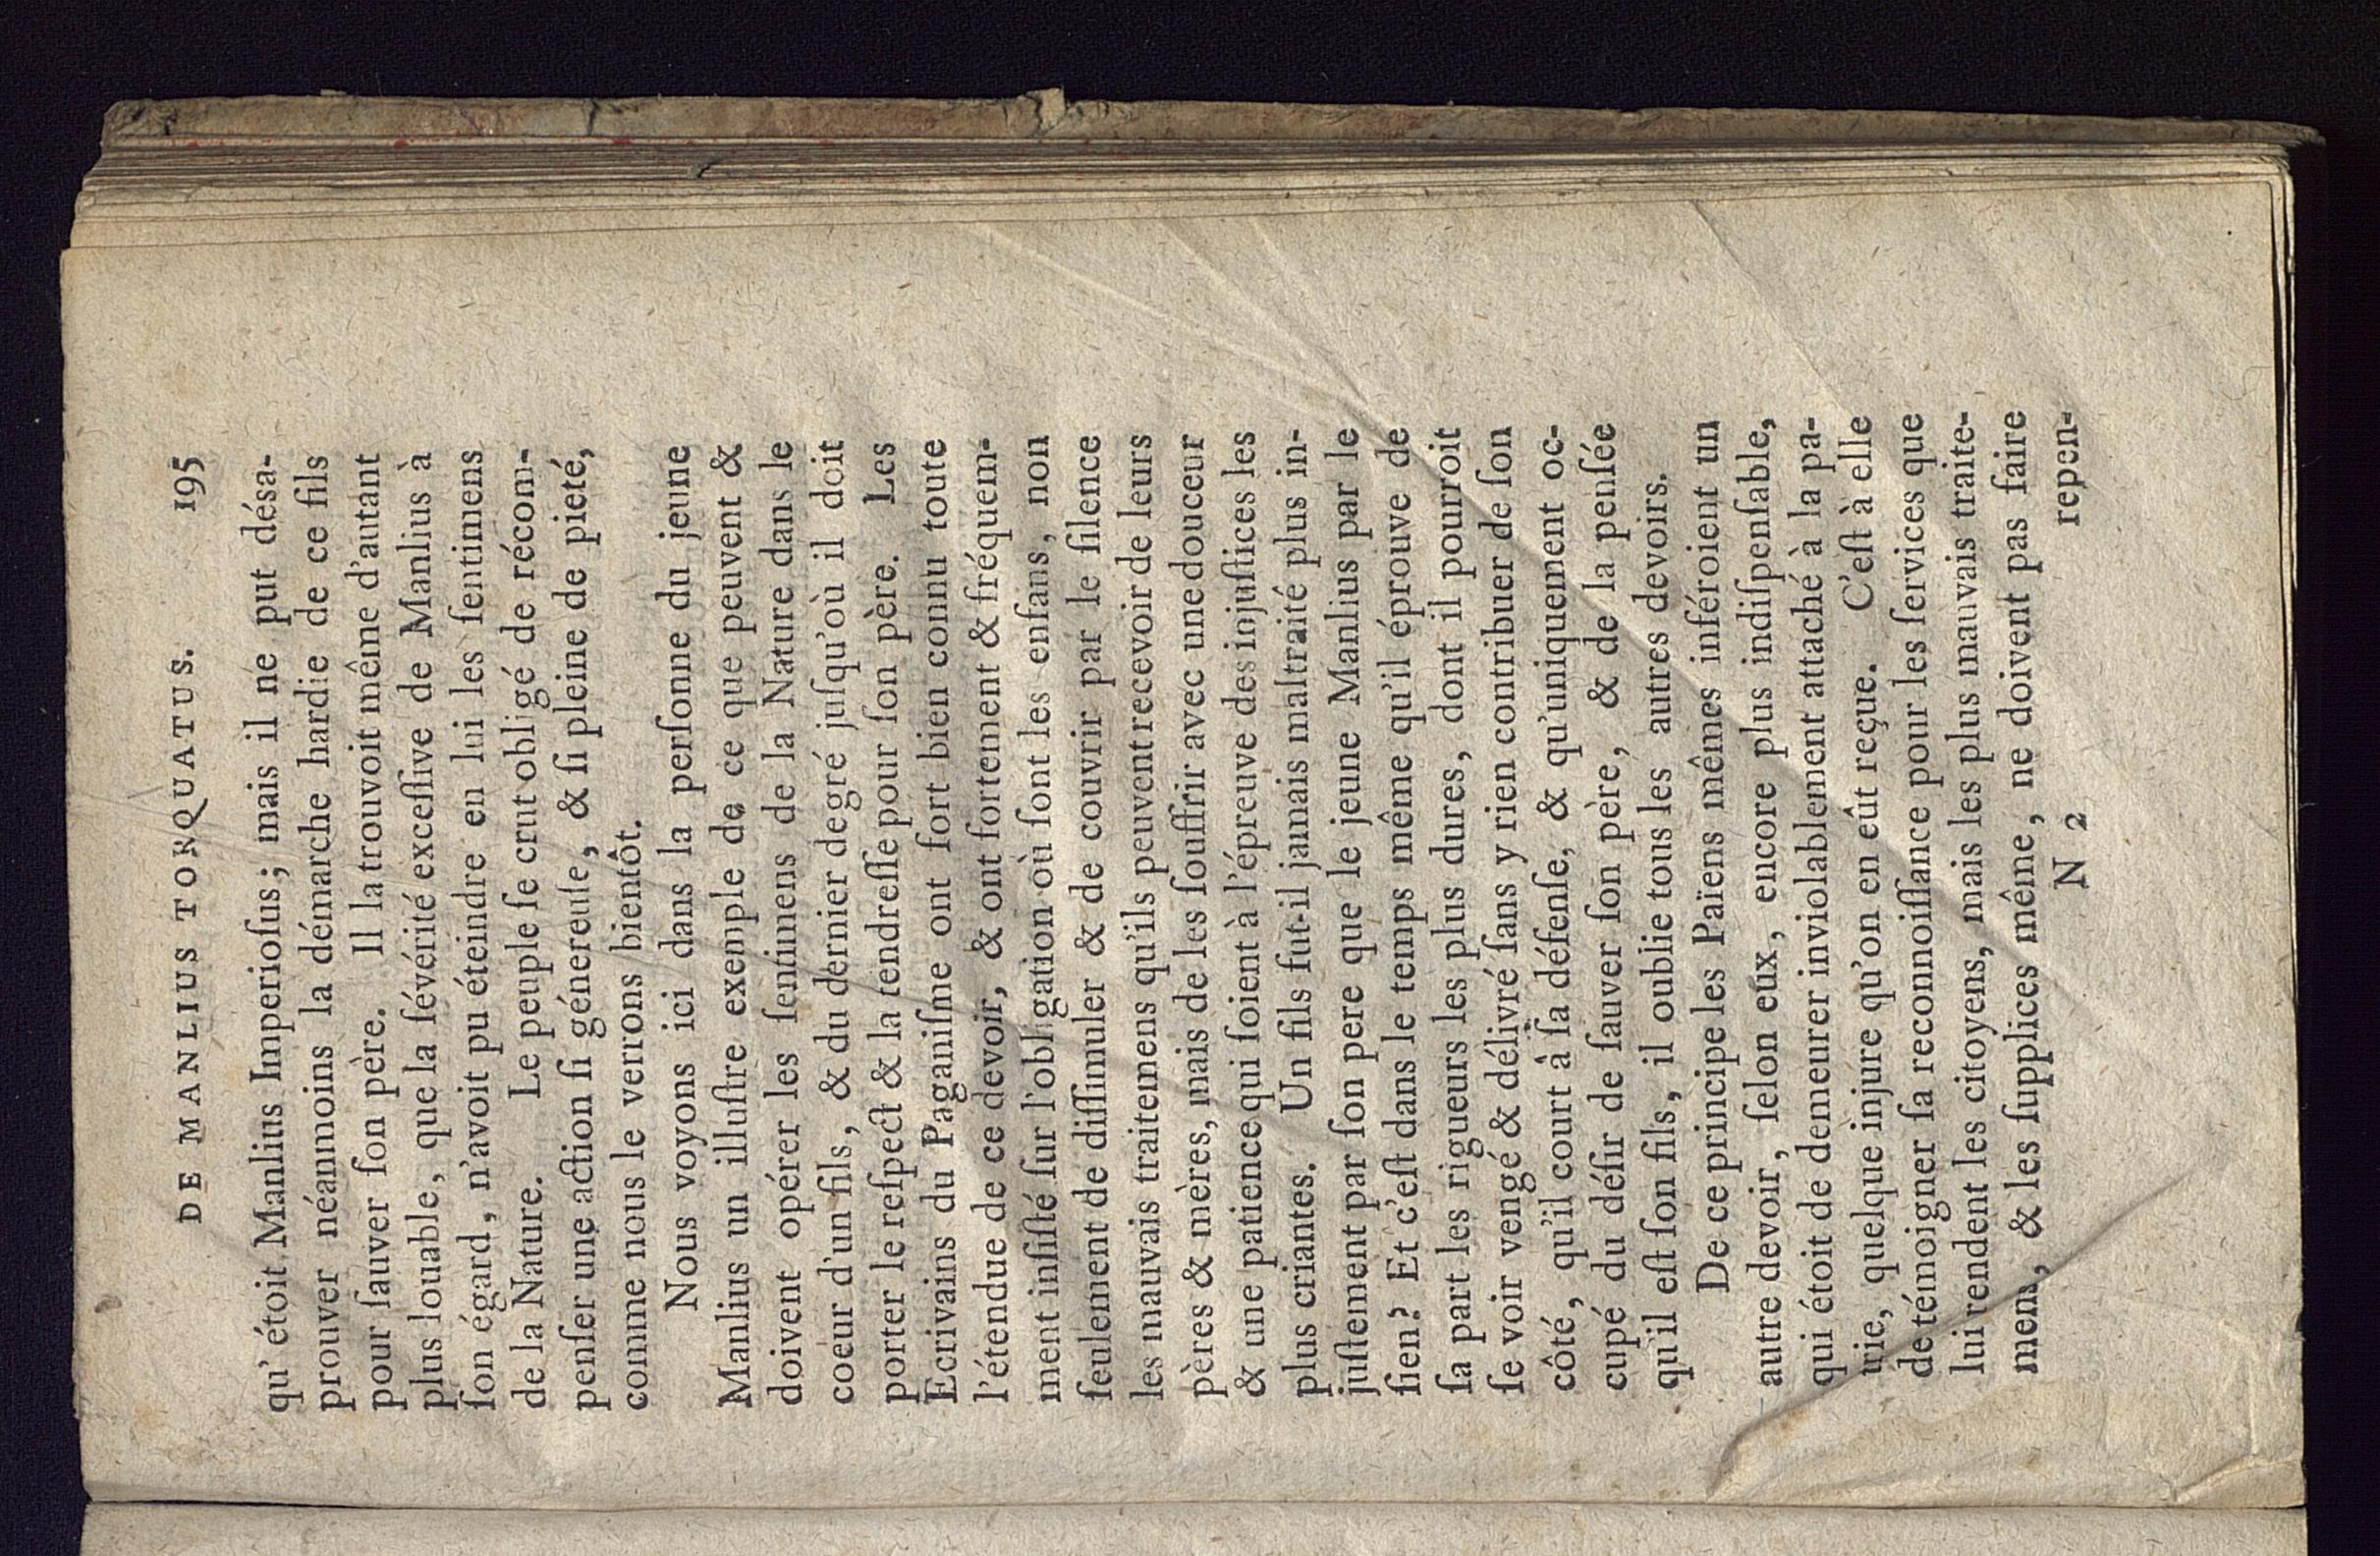 DE MANLIUS TORQUATUS. 195
qu'étoit Manlius Imperioſus; mais il ne put désa-
prouver néanmoins la démarche hardie de ce fils
pour ſauver ſon père. Il la trouvoit même d'autant
plus louable, que la ſévérité exceſſive de Manlius à
ſon égard, n'avoit pu éteindre en lui les ſentimens
de la Nature. Le peuple ſe crut obligé de récom-
penſer une action ſi génereuſe, & ſi pleine de pieté,
comme nous le verrons bientôt.
Nous voyons ici dans la perſonne du jeune
Manlius un illuſtre exemple de ce que peuvent &
doivent opérer les ſentimens de la Nature dans le
coeur d'un fils, & du dernier degré juſqu'où il doit
porter le reſpect & la tendreſſe pour ſon père. Les
Ecrivains du Paganiſme ont fort bien connu toute
l'étendue de ce devoir, & ont fortement & fréquem-
ment inſiſté ſur l'obligation où ſont les enfans, non
ſeulement de diſſimuler & de couvrir par le ſilence
les mauvais traitemens qu'ils peuvent recevoir de leurs
pères & mères, mais de les ſouffrir avec une douceur
& une patience qui ſoient à l'épreuve des injuſtices les
plus criantes. Un fils fut-il jamais maltraité plus in-
juſtement par ſon pere que le jeune Manlius par le
ſien? Et c'eſt dans le temps même qu'il éprouve de
ſa part les rigueurs les plus dures, dont il pourroit
ſe voir vengé & délivré ſans y rien contribuer de ſon
côté, qu'il court à ſa défenſe, & qu'uniquement oc-
cupé du déſir de ſauver ſon père, & de la penſée
qu'il eſt ſon fils, il oublie tous les autres devoirs.
De ce principe les Païens mêmes inféroient un
autre devoir, ſelon eux, encore plus indiſpenſable,
qui étoit de demeurer inviolablement attaché à la pa-
trie, quelque injure qu'on en eût reçue. C'eſt à elle
de témoigner ſa reconnoiſſance pour les ſervices que
lui rendent les citoyens, mais les plus mauvais traite-
mens, & les ſupplices même, ne doivent pas faire
N 2 repen-